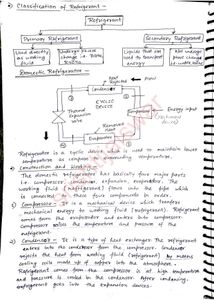 Classification of Refrigerant -
Refrigerant
Primary Refrigerant
Secondary Refrigerant
Used directly as working fluid
Undergo phase change
Liquids that are used to transport energy
Not undergo phase change
Domestic Refrigerator -
Heat Rejected
Condenser
CYCLIC DEVICE
Energy input
Evaporator
Heat
Refrigerator is a cyclic device which is used to maintain lower
temperature as compare to surrounding temperature.
Construction and Working -
The domestic refrigerator has basically four major parts
i.e. compressor, condenser, expansion, evaporator. The
working fluid (refrigerant) flows into the type which
is connected to these four components in cycle.
Compressor - It is a mechanical device which transfers
mechanical energy to working fluid (refrigerant). Refrigerant
comes from the evaporator and enters in the compressor.
Compressor raises the temperature and pressure of the
refrigerant.
Condenser - It is a type of heat exchanger. The refrigerant
enters into the condenser from the compressor. Condenser
rejects the heat from working fluid (refrigerant) by means
cooling coils made up of copper into the atmosphere.
Refrigerant comes from the compressor is at high temperature
and pressure is cooled in the condenser. After condensing,
refrigerant goes into the expansion devices.